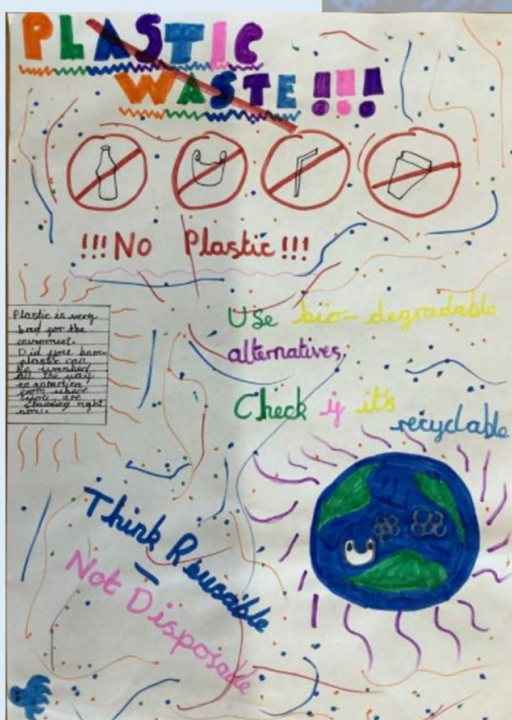 PLASTIC
WASTE!!!
!!!No Plastic!!!
Plastic is very
bad for the
Did you know
plastic can
be washed
all the way
to antartica
from where
you are
standing right
now.
Use bio-degradable
alternatives.
Check if it's
recyclable
Think Reusable
Not Disposable